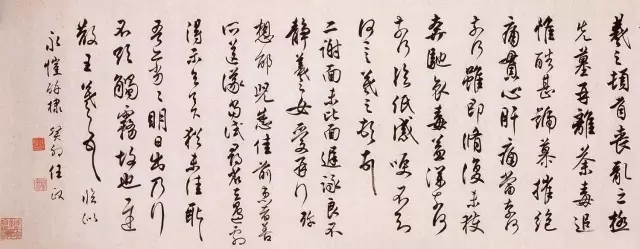 羲之頓首喪亂之極
先墓再離荼毒追
惟酷甚號慕摧絕
痛貫心肝痛當奈何
奈何雖即脩復未獲
奔馳哀毒益深奈何
奈何臨紙感哽不知
何言羲之頓首
二謝面未比面遲詠良不
靜羲之女愛再拜
想邰兒悉佳前患者善
所送議當試尋省左邊劇
得示知足下猶未佳耿
吾亦劣劣明日出乃行
不欲觸霧故也遲
散王羲之頓首 臨似
永愷好棣 任政